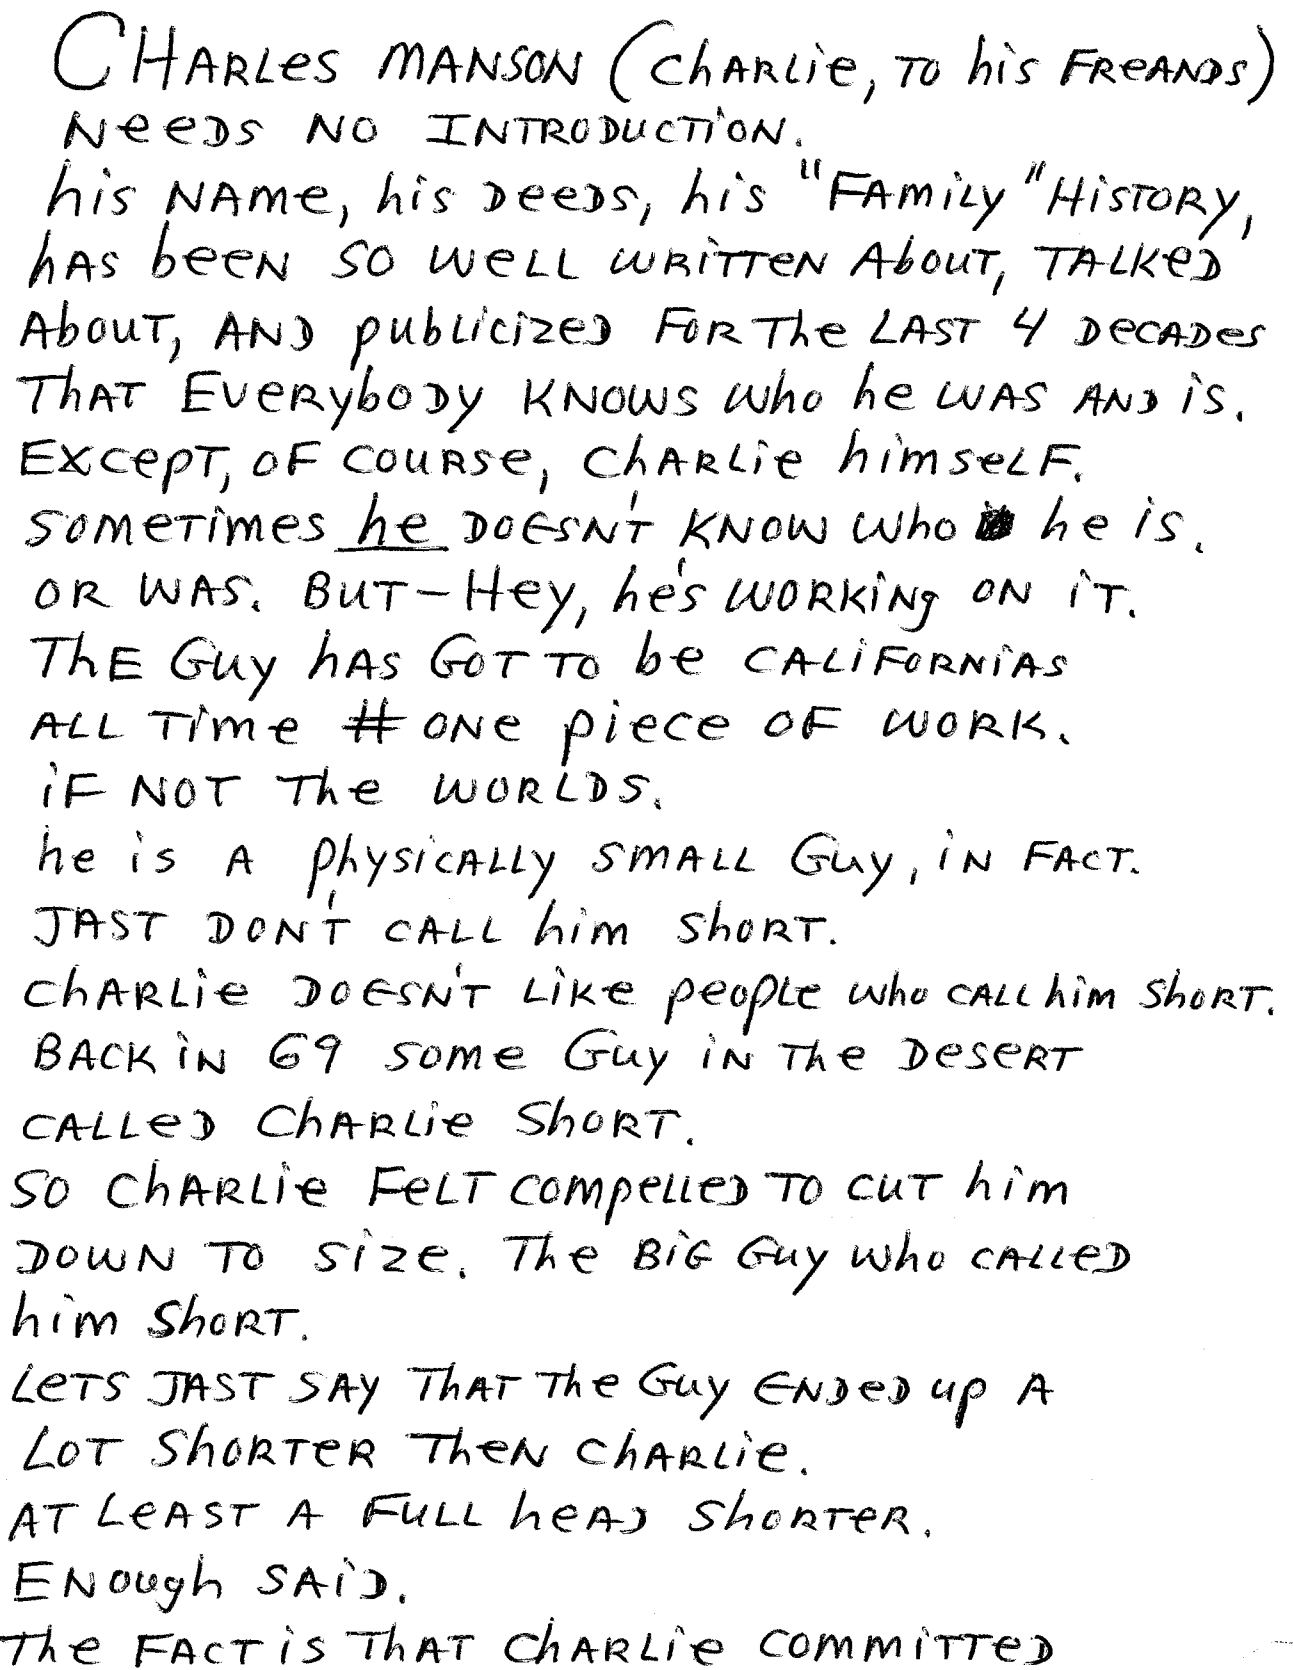 CHARLes MANSON (ChARLie, TO his FReANDS)
NeeDS NO INTRODUCTiON.
his NAme, his DeeDS, his "FAmiLy" HiSTORy,
hAS beeN SO WeLL WRiTTeN AbouT, TALKeD
AbouT, AND publicizeD FOR The LAST 4 DeCADes
ThAT EVeRybODy KNOWS Who he WAS AND iS.
EXcepT, OF COURSe, ChARLie himseLF.
SOMeTimes he DOESN'T KNOW Who he iS.
OR WAS. BUT - Hey, he's WORKiNg ON iT.
ThE Guy hAS GOT TO be CALiFORNiAS
ALL Time # ONe piece OF WORK.
iF NOT The WORLDS.
he is A physicALLy SmALL Guy, iN FACT.
JAST DON'T CALL him ShORT.
ChARLie DOESN'T LiKe peopLe Who CALL him ShORT.
BACK iN 69 Some Guy iN The DeseRT
CALLeD ChARLie ShORT.
SO ChARLie FeLT compelleD TO CUT him
DOWN TO Size. The BiG Guy Who CALLeD
him ShORT.
LeTS JAST SAy ThAT The Guy ENDeD up A
LOT ShORTeR TheN ChARLie.
AT LeAST A FULL heAD ShORTeR.
ENough SAiD.
The FACT is ThAT ChARLie committeD